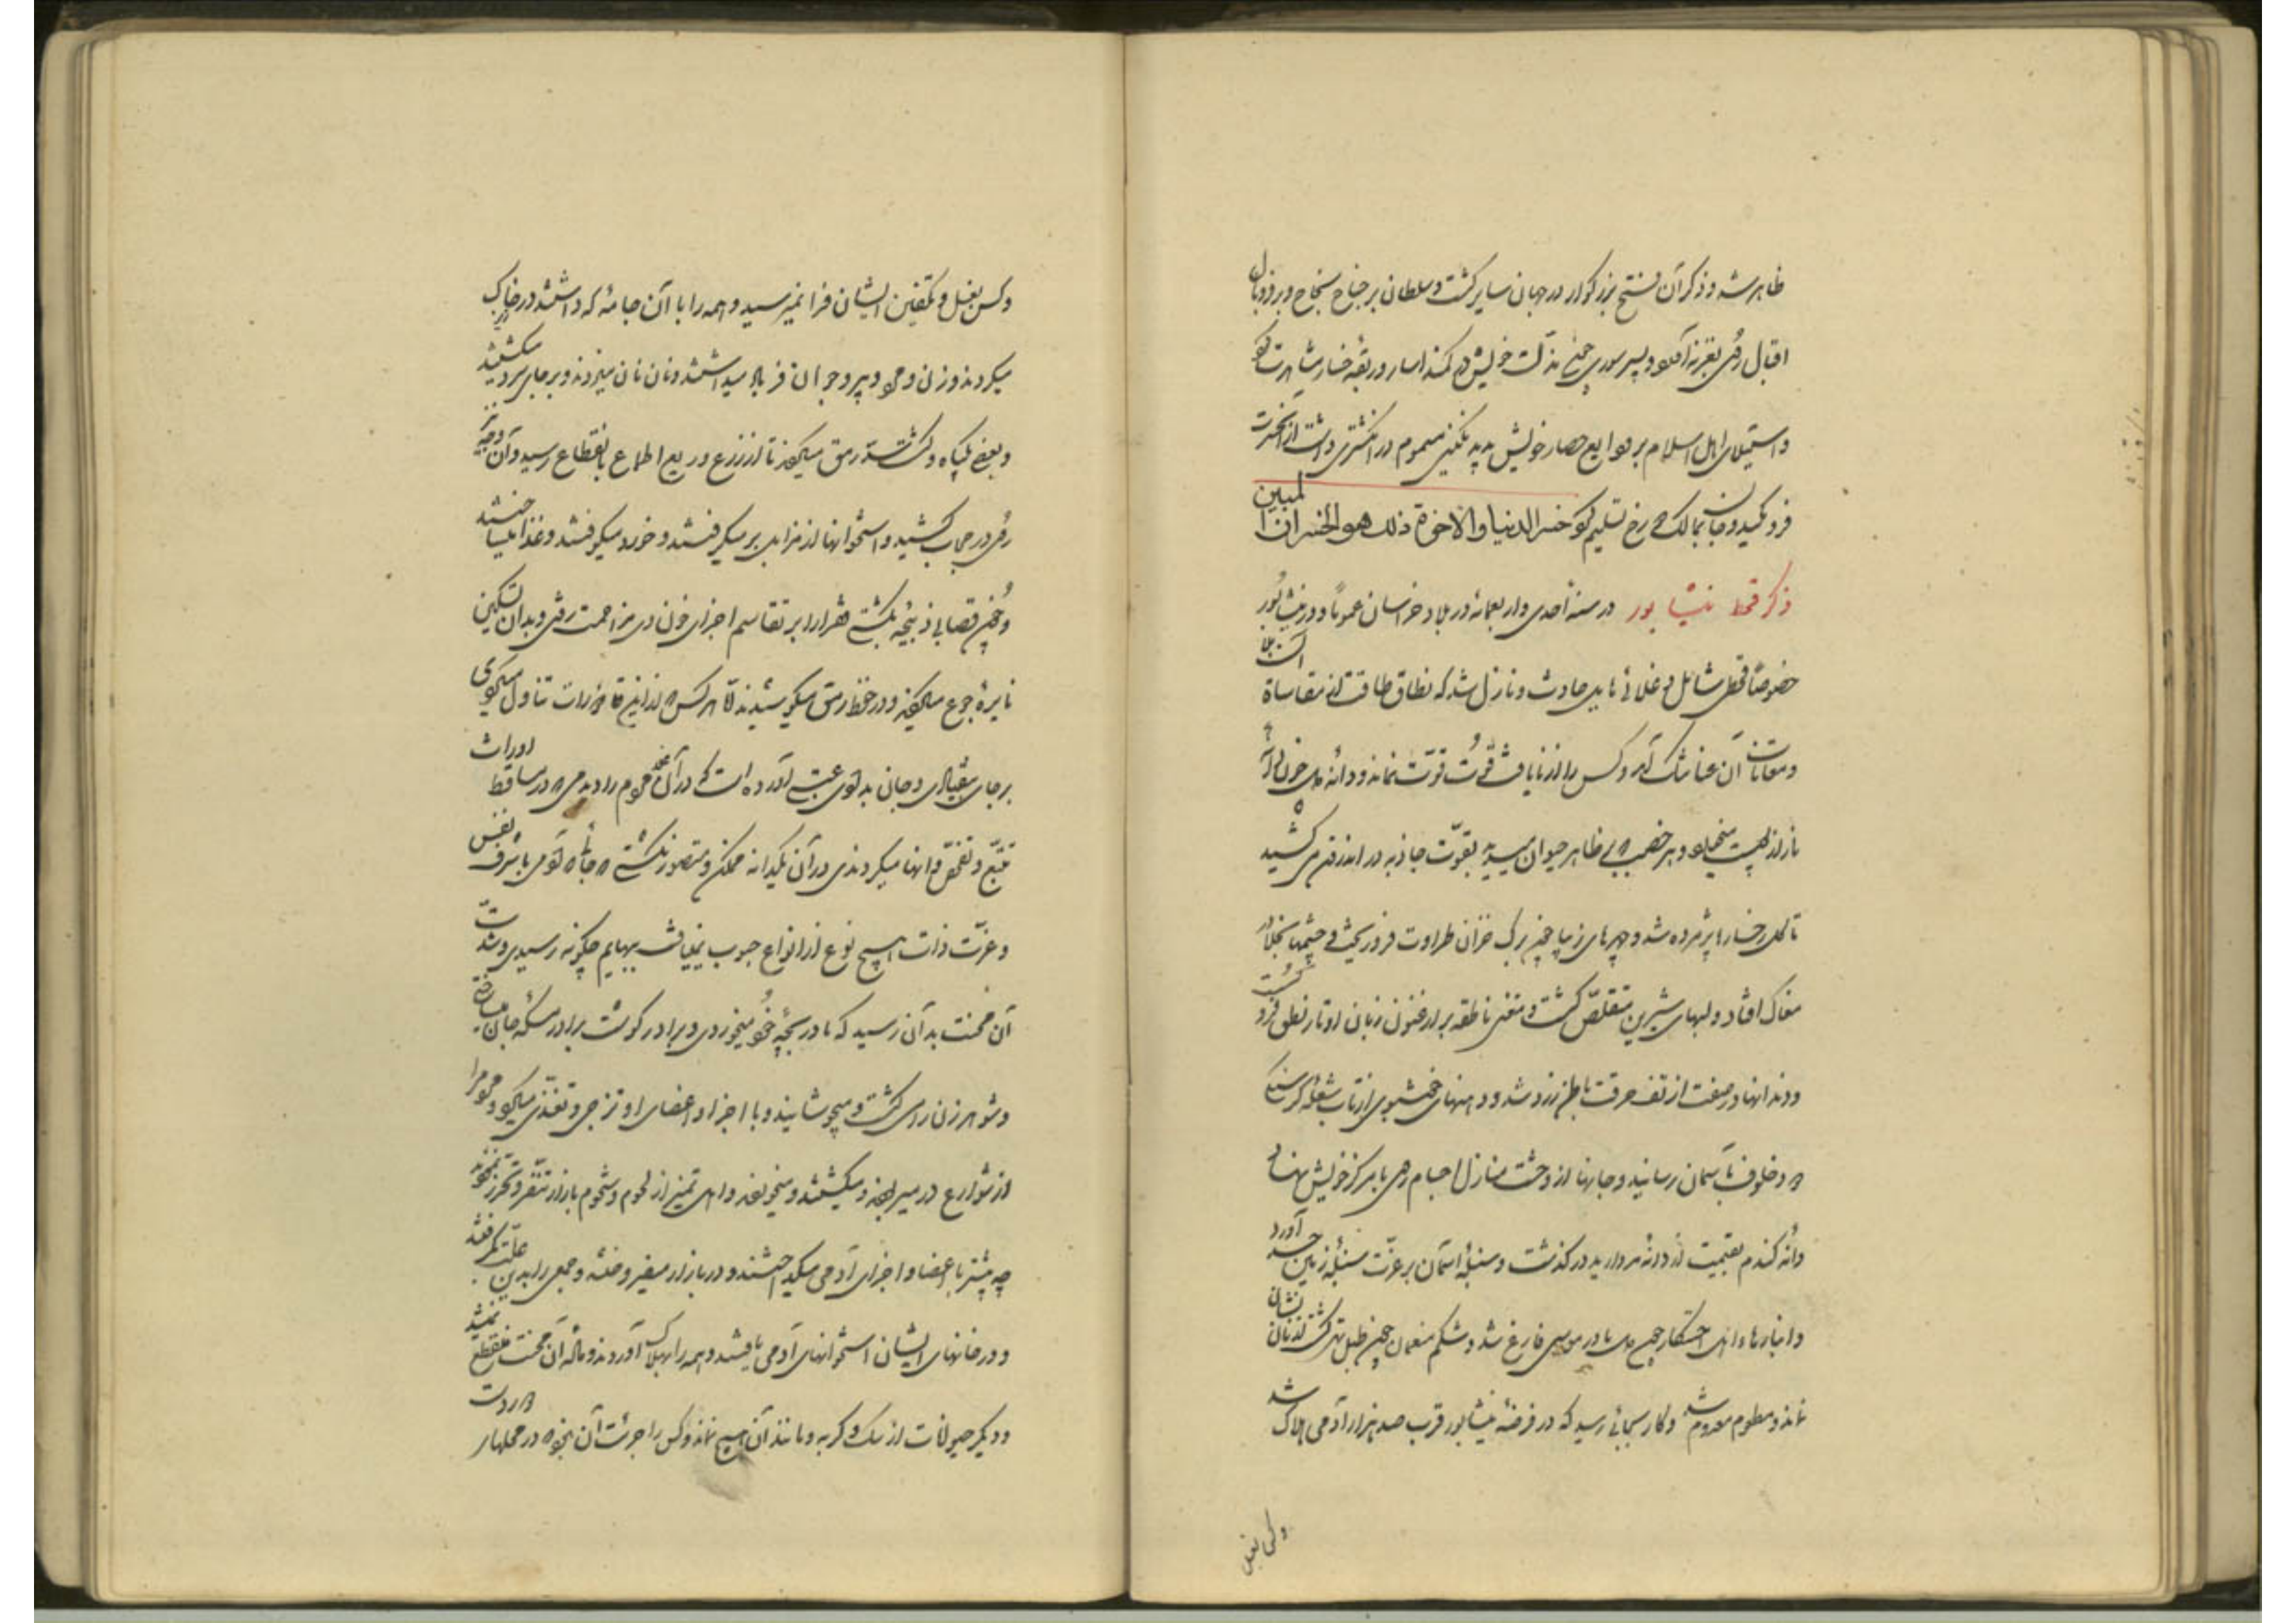 ظاهر شد و ذکر آن فتح بزرگوار در جهان سایر گشت و سلطان بر جناح نجاح و بر فرّ و بال
اقبال روی بغزنه آورد و پسر سوری چون مذلت خویش در کمند اسار و ربقه خسار مشاهرت کرد
و استیلای اهل اسلام بر قوابع حصار خویش بدید نگینی مسموم در انگشتری داشت از آن حسرت
فرو مکید و جان بمالک رخ تسلیم کرد خسر الدنیا والاخرة ذلك هو الخسران المبین
ذکر قحط نیشابور در سنه احدی و اربعمائه در بلاد خراسان عموماً و در نیشابور
خصوصاً قحطی شامل و غلائی هایل حادث و نازل شد که نطاق طاقت از مقاساة آن بلا
و معانات آن عنا تنگ آمد و کس را از نایافت قوت قوّت نماند و دانه دل خون
باز از پوست و هر خضب ظاهر حیوان میدید بقوّت جاذبه در اندرون می کشید
تا گل رخسارها پژمرده شد و چهرهای زیبا چون برگ خزان طراوت فرو ریخت و چشمها
مغاک افتاد و لبهای شیرین متقلّص گشت و مغنی ناطقه بر ارغنون زبان اوتار نطق فرو گسست
و دندانها در صفت از تف حرقت باطن زرد شد و دهنهای خوشبوی از تاب شعله گرسنگی
و خلوف بآسمان رسانید و جانها از وحشت منازل اجسام روی با مرکز خویش نهاد
دانه گندم بقیمت از دانه مروارید درگذشت و سنبله آسمان بر عزّت سنبله زمین حسد آورد
و انبارهاء اهل احتکار چون دل مادر موسی فارغ شد و شکم منعمان چون طبل تهی گشت از نان نشان
نماند و مطعوم معدوم شد و کار بجائی رسید که در فرضه نیشابور قرب صد هزار آدمی هلاک شد
و کس بغسل
و کس بغسل و تکفین ایشان فرا نمیرسید و همه را با آن جامه که داشتند در خاک
میکردند و زن و مرد و پیر و جوان فریاد میداشتند و نان نان میزدند و بر جای سرد میگشتند
و بعضی بگیاه و کشت سد رمق میکردند تا از زرع و ریع اطماع بانقطاع رسید و آن وجه نیز
روی در حجاب کشید و استخوانها از مزابل بر میگرفتند و خورد میکوفتند و غذا میساختند
و چون قصابی ذبیحه بکشتی فقرا بر تقاسم اجزای خون وی مزاحمت رفتی و بدان تسکین
نایره جوع میکردند و در حفظ رمق میکوشیدند امّا هر کس از این قاذورات تناول میکردی
بر جای بیفتادی و جان بدادی عتبی آورده است که در آن محروم را دیدمی در مساقط اوراث
تتبّع و تفحّص دانها میکردندی و در آن یکدانه ممکن و متصور نگشتی جائی آدمی با شرف نفس
و عزّت ذات هیچ نوع از انواع حبوب نمییافت ببهایم چگونه رسیدی و شدّت
آن محنت بدان رسید که مادر بچه خود میخوردی و برادر گوشت برادر مسکه جان میساختی
و شوهر زن را می کشت و میجوشانید و با اجزا و اعضای او تزجی و تغذی میکرد و مردم را
از شوارع در میربودند و میکشتند و میخوردند و اهل تمیز از لحوم و شحوم بازار تنفّر و تحرّز نمودند
چه بیشتر با اعضا و اجزای آدمی میگداختند و در بازار میفروختند و جمعی را بدین علّت گرفتند
و در خانهای ایشان استخوانهای آدمی یافتند و همه را بهلاک آوردند و مادّه آن محنت منقطع نمیشد
و دیگر حیوانات از سگ و گربه و مانند آن هیچ نماند و کس را جرئت آن نبود در محلهای